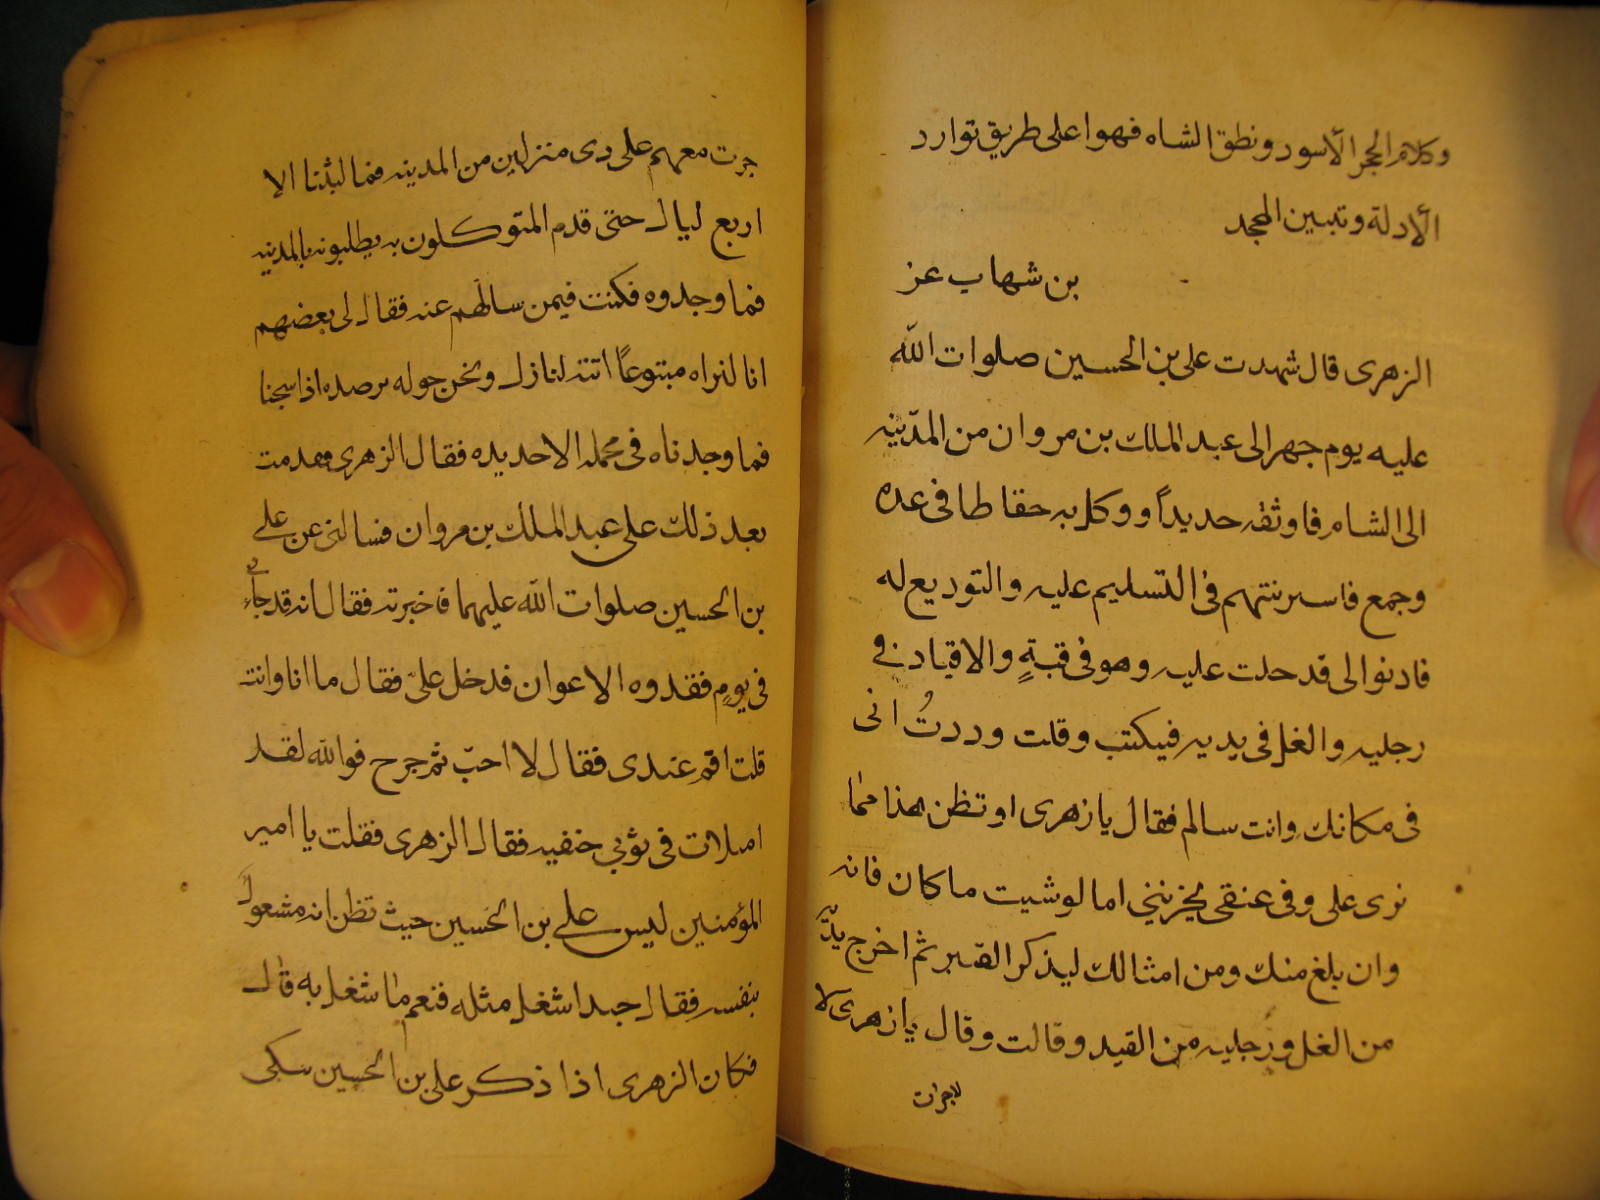 وكلام الحجر الأسود ونطق الشاه فهوا على طريق توارد
الأدلة وتبين المجد
بن شهاب عز
الزهرى قال شهدت على بن الحسين صلوات الله
عليه يوم جهر الى عبد الملك بن مروان من المدينه
الى الشام فاوثقه حديداً ووكل به حقاطا فى عده
وجمع فاستنتهم فى التسليم عليه والتوديع له
فادنوا لى قد حلت عليه وهو فى قبةٍ والاقياد فى
رجليه والغل فى يديه فيكتب وقلت وددتُ انى
فى مكانك وانت سالم فقال يا زهرى او تظن هذا مما
نرى على وفى عنقى يحزننى اما لو شيت ما كان فانه
وان بلغ منك ومن امثالك ليذكر القبر ثم اخرج يدَّيه
من الغل ورجليه من القيد وقالت وقال يا زهرى لا
لاجرات
جرت معهم على دى منزلين من المدينه فما لبثنا الا
اربع ليال حتى قدم المتوكلون به يطلبونه بالمدينه
فما وجدوه فكنت فيمن سالهم عنه فقال لى بعضهم
انا لنراه مبتوعاً انه لنازل ونحن حوله نرصده اذا سجنا
فما وجدناه فى محمله الا حديده فقال الزهرى فقدمت
بعد ذلك على عبد الملك بن مروان فسالنى عن على
بن الحسين صلوات الله عليهما فاخبرته فقال انه قد جاءنى
فى يومٍ فقدوه الاعوان فدخل علىّ فقال ما انا وانت
قلت اقم عندى فقال لا احبّ ثم جرح فوالله لقد
املات فى ثوبى خنفيه فقال الزهرى فقلت يا امير
المؤمنين ليس على بن الحسين حيث تظن انه مشعول
بنفسه فقال جبدا شغل مثله فنعم ما شغل به قال
فكان الزهرى اذا ذكر على بن الحسين سكى